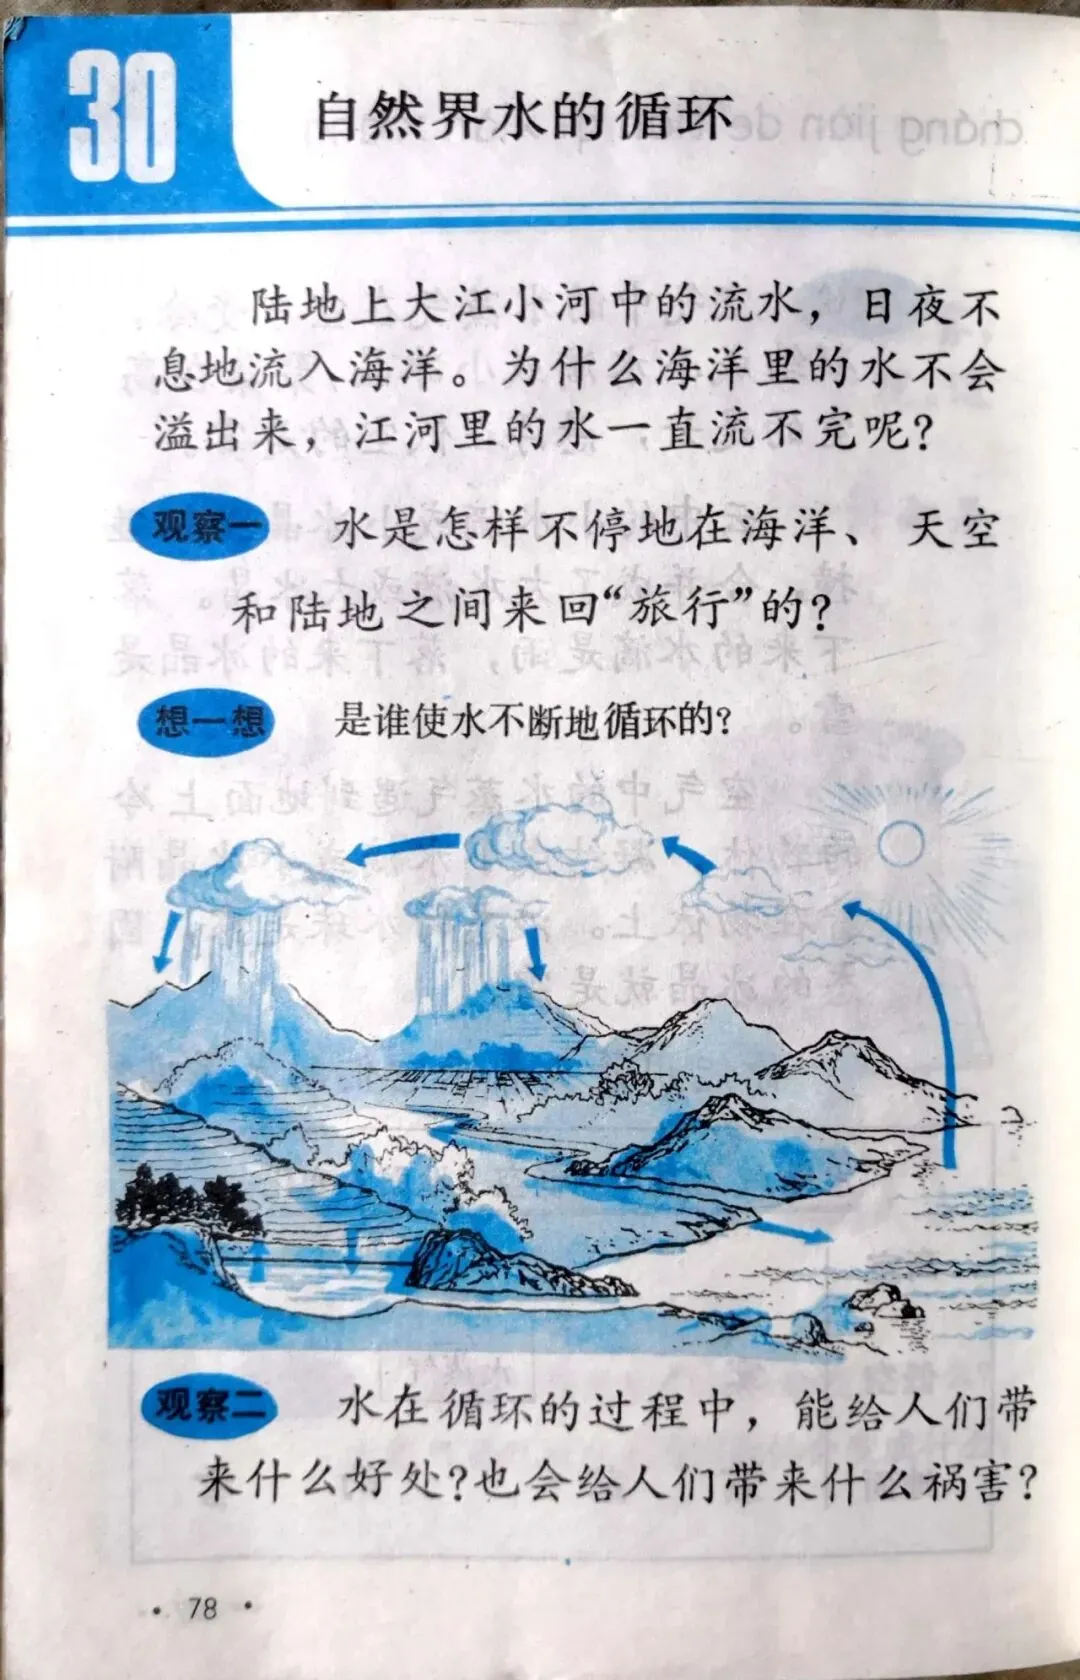 30
自然界水的循环
陆地上大江小河中的流水，日夜不
息地流入海洋。为什么海洋里的水不会
溢出来，江河里的水一直流不完呢？
观察一 水是怎样不停地在海洋、天空
和陆地之间来回“旅行”的？
想一想 是谁使水不断地循环的？
观察二 水在循环的过程中，能给人们带
来什么好处？也会给人们带来什么祸害？
· 78 ·